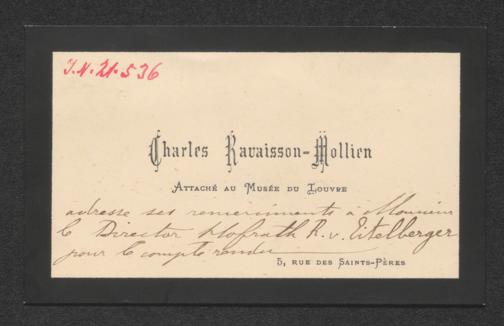 J.N. 21.536
Charles Ravaisson-Mollien
Attaché au Musée du Louvre
adresse ses remerciments à Monsieur
le Director Hofrath R. v. Eitelberger
pour le compte rendu
5, rue des Saints-Pères